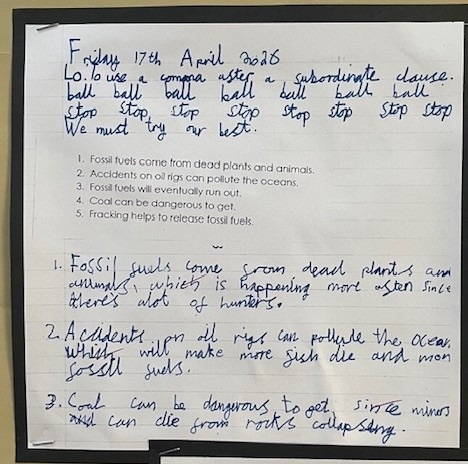 Friday 17th April 2026
Lo. To use a comma after a subordinate clause.
ball ball ball ball ball ball ball
Stop Stop Stop Stop Stop Stop Stop Stop
We must try our best.
1. Fossil fuels come from dead plants and animals.
2. Accidents on oil rigs can pollute the oceans.
3. Fossil fuels will eventually run out.
4. Coal can be dangerous to get.
5. Fracking helps to release fossil fuels.
1. Fossil fuels come from dead plants and
animals, which is happening more often since
there's alot of hunters.
2. Accidents on oil rigs can pollute the ocean,
which will make more fish die and mon
fossil fuels.
3. Coal can be dangerous to get, since miners
and can die from rocks collapsing.